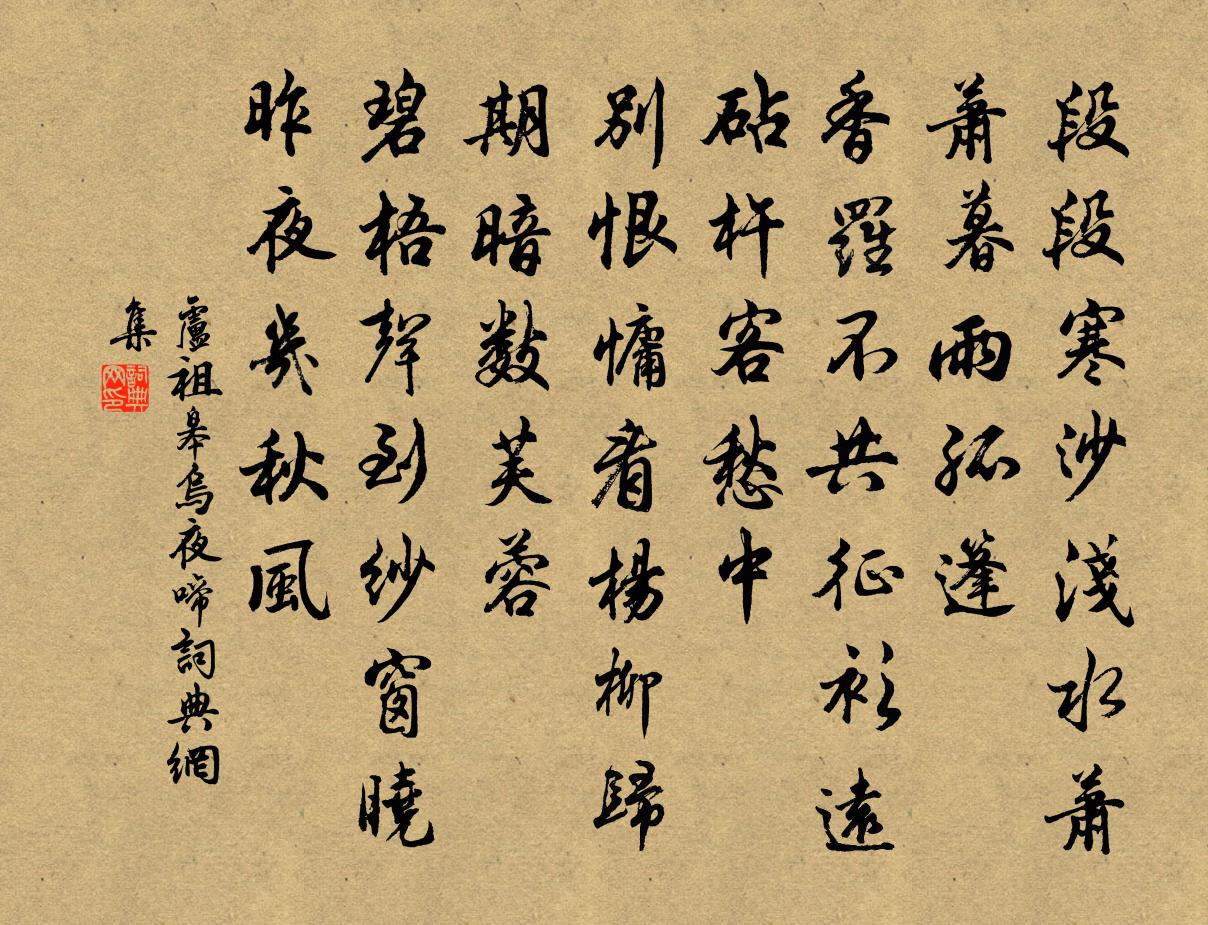 段段寒沙淺水蕭
蕭暮雨孤篷
香羅不共征衫遠
砧杵客愁中
別恨慵看楊柳歸
期暗數芙蓉
碧梧聲到紗窗曉
昨夜幾秋風
盧祖皋烏夜啼詞典網
集
詞典
网印